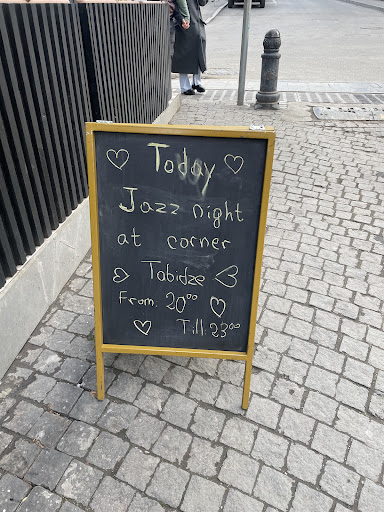 Today
Jazz night
at corner
Tabidze
From. 20⁰⁰
Till. 23⁰⁰